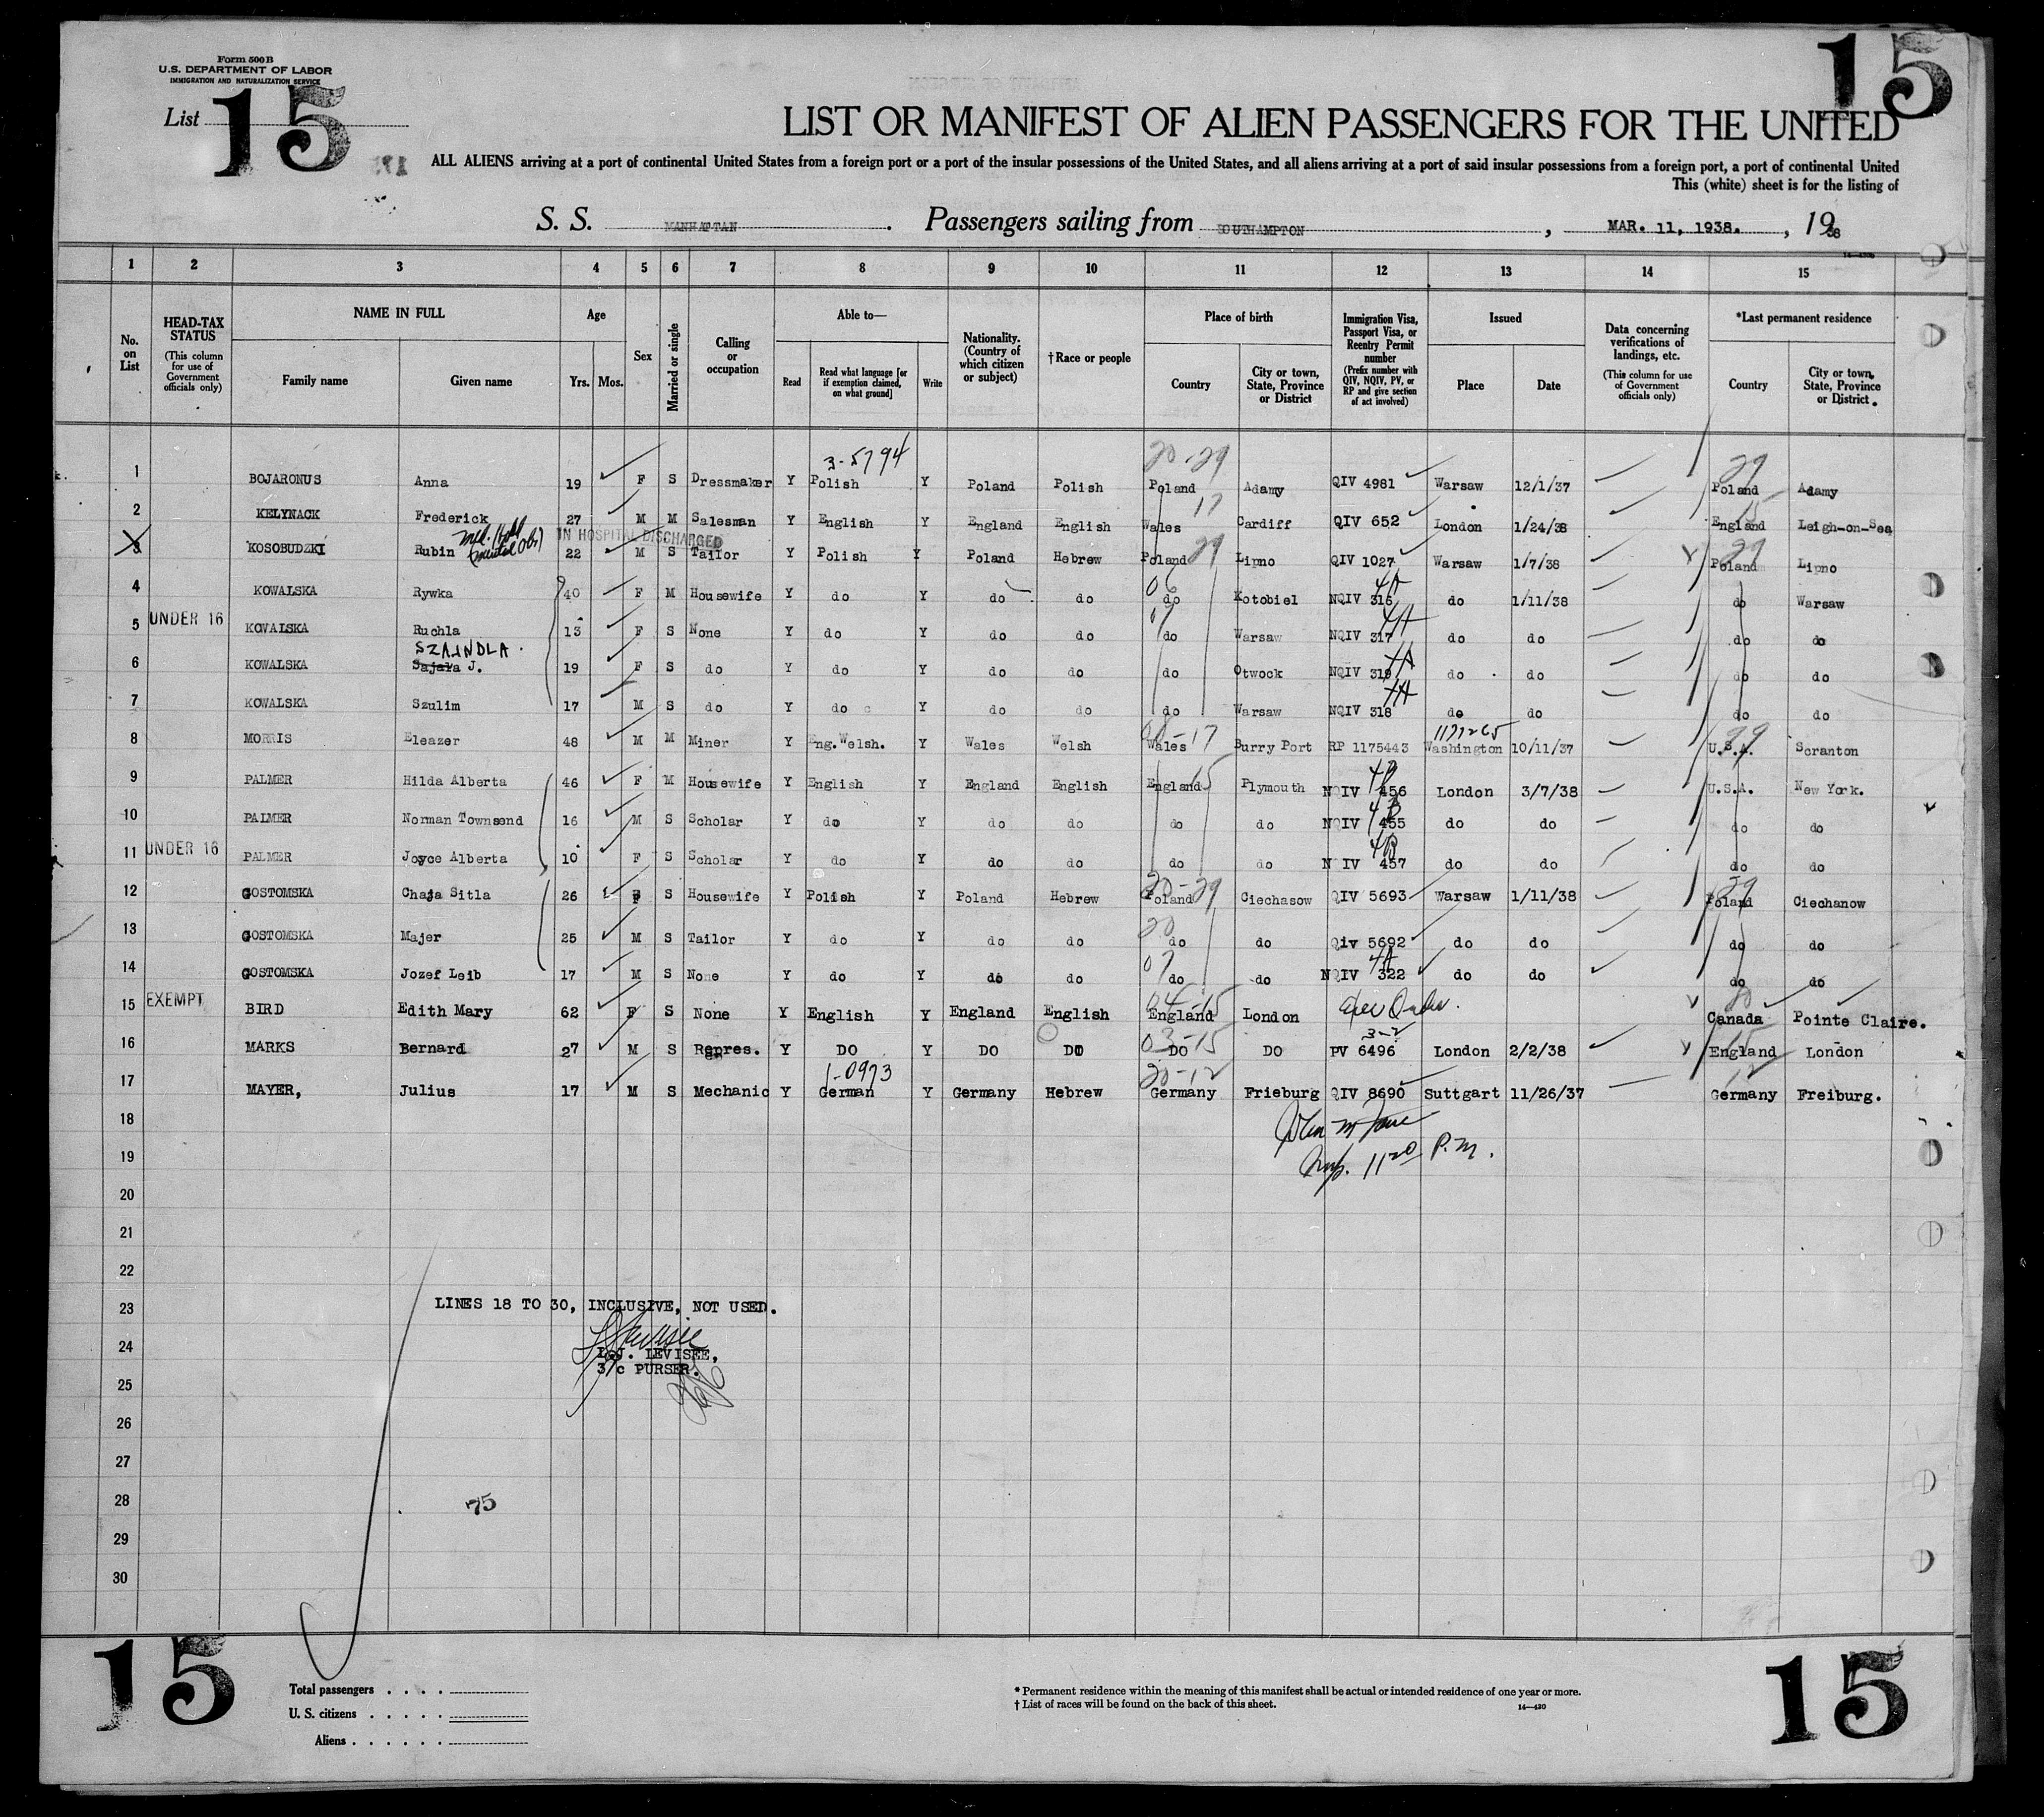 Form 500 B
U.S. DEPARTMENT OF LABOR
IMMIGRATION AND NATURALIZATION SERVICE
List 15
15
LIST OR MANIFEST OF ALIEN PASSENGERS FOR THE UNITED
ALL ALIENS arriving at a port of continental United States from a foreign port or a port of the insular possessions of the United States, and all aliens arriving at a port of said insular possessions from a foreign port, a port of continental United
This (white) sheet is for the listing of
S. S. MANHATTAN. Passengers sailing from SOUTHAMPTON, MAR. 11, 1938., 1938
1 2 3 4 5 6 7 8 9 10 11 12 13 14 15
No. on List
HEAD-TAX STATUS (This column for use of Government officials only)
NAME IN FULL
Family name Given name
Age
Yrs. Mos.
Sex
Married or single
Calling or occupation
Able to—
Read Read what language [or if exemption claimed, on what ground] Write
Nationality. (Country of which citizen or subject)
†Race or people
Place of birth
Country City or town, State, Province or District
Immigration Visa, Passport Visa, or Reentry Permit number (Prefix number with QIV, NQIV, PV, or RP and give section of act involved)
Issued
Place Date
Data concerning verifications of landings, etc. (This column for use of Government officials only)
*Last permanent residence
Country City or town, State, Province or District.
3-5794 20-29 29
1 BOJARONUS Anna 19 F S Dressmaker Y Polish Y Poland Polish Poland Adamy QIV 4981 Warsaw 12/1/37 Poland Adamy
17 15
2 KELYNACK Frederick 27 M M Salesman Y English Y England English Wales Cardiff QIV 652 London 1/24/38 England Leigh-on-Sea
IN HOSPITAL DISCHARGED
3 KOSOBUDZKI Rubin 22 M S Tailor Y Polish Y Poland Hebrew Poland 29 Lipno QIV 1027 Warsaw 1/7/38 Poland 29 Lipno
06 4A
4 KOWALSKA Rywka 40 F M Housewife Y do Y do do do Kotobiel NQIV 316 do 1/11/38 do Warsaw
07 4A
5 UNDER 16 KOWALSKA Ruchla 13 F S None Y do Y do do do Warsaw NQIV 317 do do do do
SZAJNDLA 4A
6 KOWALSKA Sajala J. 19 F S do Y do Y do do do Otwock NQIV 319 do do do do
4A
7 KOWALSKA Szulim 17 M S do Y do Y do do do Warsaw NQIV 318 do do do do
08-17 1177265 29
8 MORRIS Eleazer 48 M M Miner Y Eng.Welsh. Y Wales Welsh Wales Burry Port RP 1175443 Washington 10/11/37 U.S.A. Scranton
4B
9 PALMER Hilda Alberta 46 F M Housewife Y English Y England English England 15 Plymouth NQIV 456 London 3/7/38 U.S.A. New York.
4B
10 PALMER Norman Townsend 16 M S Scholar Y do Y do do do do NQIV 455 do do do do
4B
11 UNDER 16 PALMER Joyce Alberta 10 F S Scholar Y do Y do do do do N IV 457 do do do do
20-29 29
12 GOSTOMSKA Chaja Sitla 26 F S Housewife Y Polish Y Poland Hebrew Poland Ciechasow QIV 5693 Warsaw 1/11/38 Poland Ciechanow
20
13 GOSTOMSKA Majer 25 M S Tailor Y do Y do do do do Qiv 5692 do do do do
07 4A
14 GOSTOMSKA Jozef Leib 17 M S None Y do Y do do do do NQIV 322 do do do do
04-15 20
15 EXEMPT BIRD Edith Mary 62 F S None Y English Y England English England London Canada Pointe Claire.
03-15 3-2 15
16 MARKS Bernard 27 M S Repres. Y DO Y DO DO DO DO PV 6496 London 2/2/38 England London
1-0973 20-12 12
17 MAYER, Julius 17 M S Mechanic Y German Y Germany Hebrew Germany Frieburg QIV 8690 Suttgart 11/26/37 Germany Freiburg.
18
19 Insp. 11 20 P.M.
20
21
22
23 LINES 18 TO 30, INCLUSIVE, NOT USED.
24 L.J. LEVISEE,
3/c PURSER.
25
26
27
28 75
29
30
15
Total passengers
U. S. citizens
Aliens
* Permanent residence within the meaning of this manifest shall be actual or intended residence of one year or more.
† List of races will be found on the back of this sheet.
14—430
15